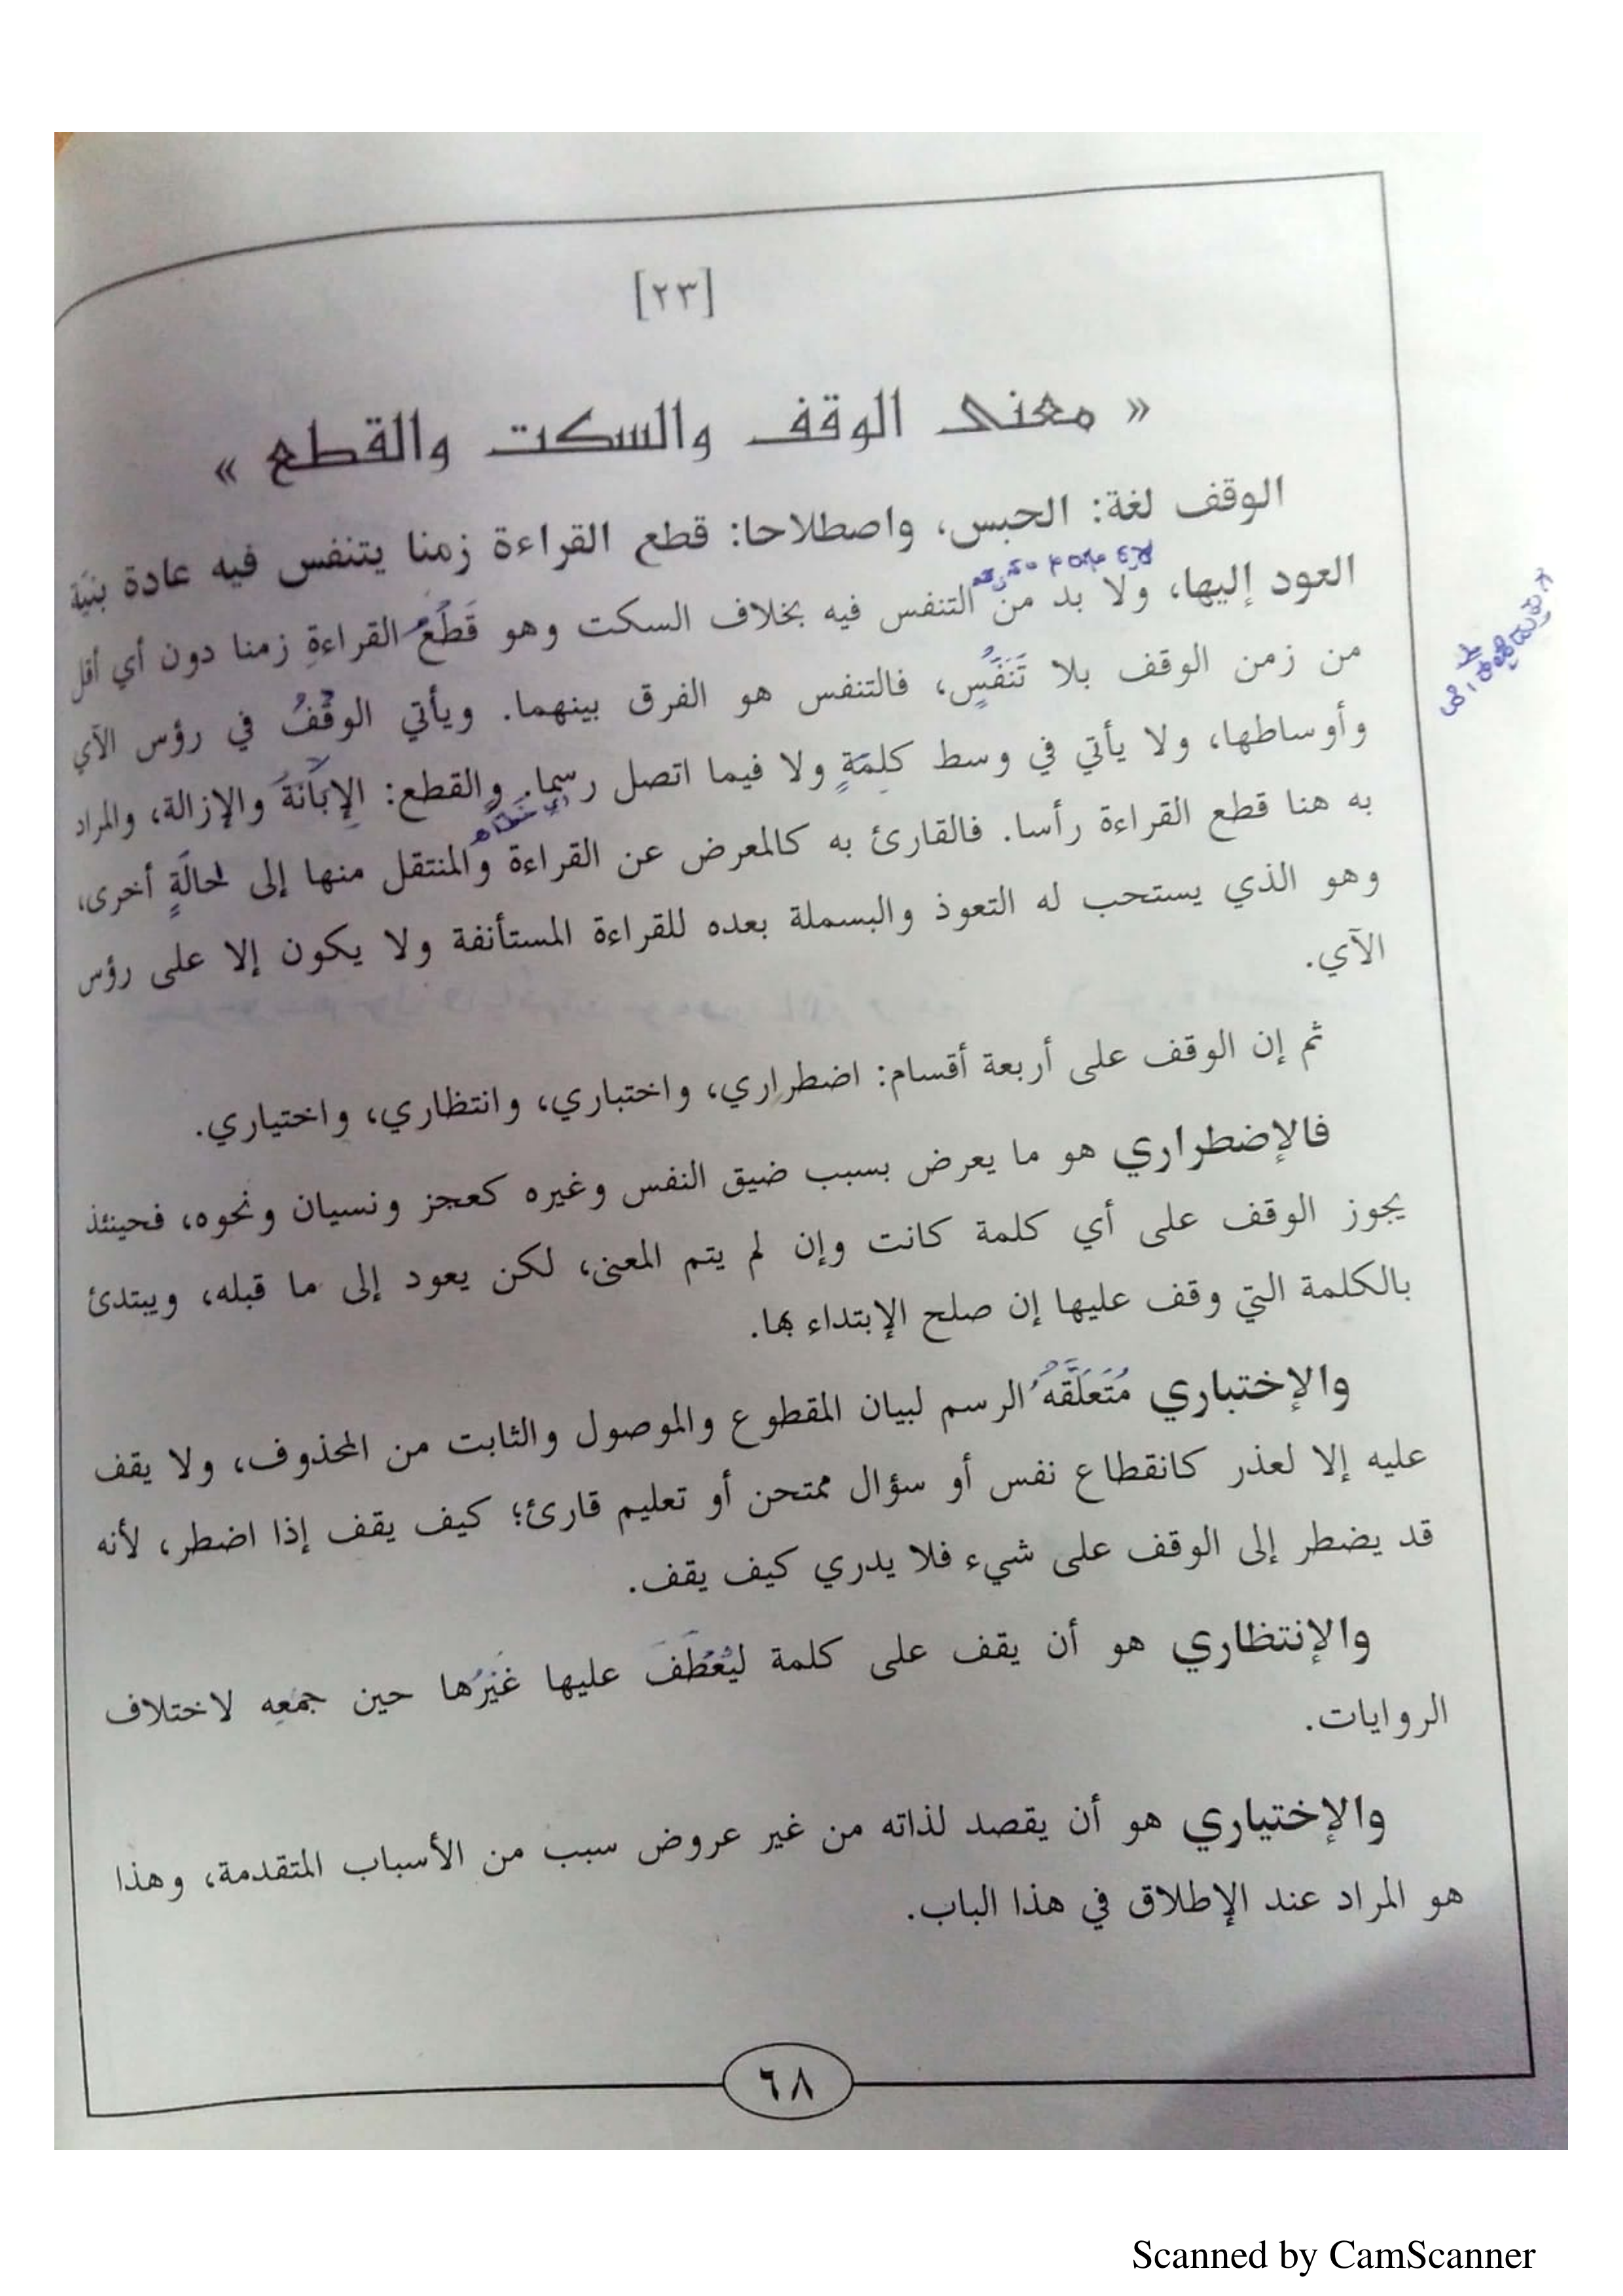 [٢٣]
« معنى الوقف والسكت والقطع »
الوقف لغة: الحبس، واصطلاحا: قطع القراءة زمنا يتنفس فيه عادة بنية
العود إليها، ولا بد من التنفس فيه بخلاف السكت وهو قَطْعُ القراءةِ زمنا دون أي أقل
من زمن الوقف بلا تَنَفُّسٍ، فالتنفس هو الفرق بينهما. ويأتي الوقْفُ في رؤس الآي
وأوساطها، ولا يأتي في وسط كلِمَةٍ ولا فيما اتصل رسما. والقطع: الإِبَانَةُ والإزالة، والمراد
به هنا قطع القراءة رأسا. فالقارئ به كالمعرض عن القراءة والمنتقل منها إلى لحالَةٍ أخرى،
وهو الذي يستحب له التعوذ والبسملة بعده للقراءة المستأنفة ولا يكون إلا على رؤس
الآي.
ثم إن الوقف على أربعة أقسام: اضطراري، واختباري، وانتظاري، واختياري.
فالإضطراري هو ما يعرض بسبب ضيق النفس وغيره كعجز ونسيان ونحوه، فحينئذ
يجوز الوقف على أي كلمة كانت وإن لم يتم المعنى، لكن يعود إلى ما قبله، ويبتدئ
بالكلمة التي وقف عليها إن صلح الإبتداء بها.
والإختباري مُتَعَلَّقُهُ الرسم لبيان المقطوع والموصول والثابت من المحذوف، ولا يقف
عليه إلا لعذر كانقطاع نفس أو سؤال ممتحن أو تعليم قارئ؛ كيف يقف إذا اضطر، لأنه
قد يضطر إلى الوقف على شيء فلا يدري كيف يقف.
والإنتظاري هو أن يقف على كلمة ليُعْطَفَ عليها غَيْرُها حين جمعِه لاختلاف
الروايات.
والإختياري هو أن يقصد لذاته من غير عروض سبب من الأسباب المتقدمة، وهذا
هو المراد عند الإطلاق في هذا الباب.
٦٨
Scanned by CamScanner